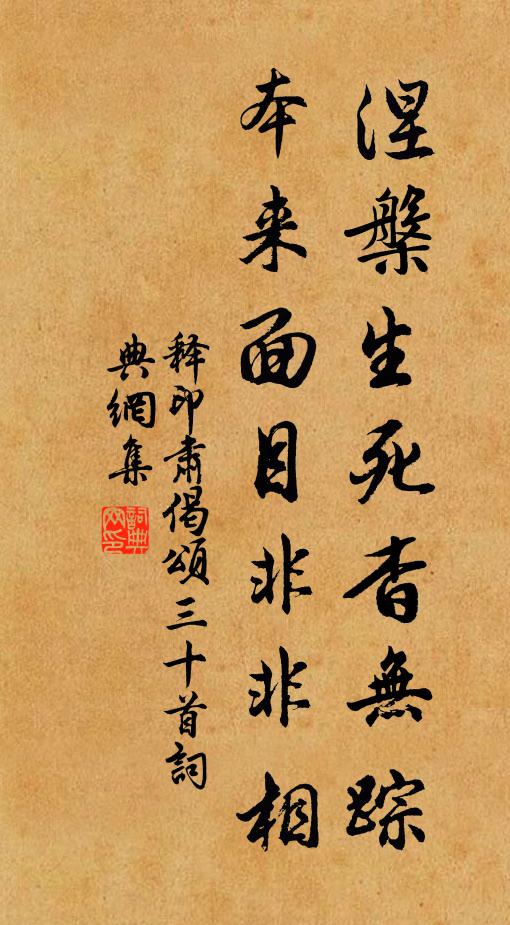 涅槃生死杳無踪
本来面目非非相
释印肅偈頌三十首詞
典網集
詞典
网印